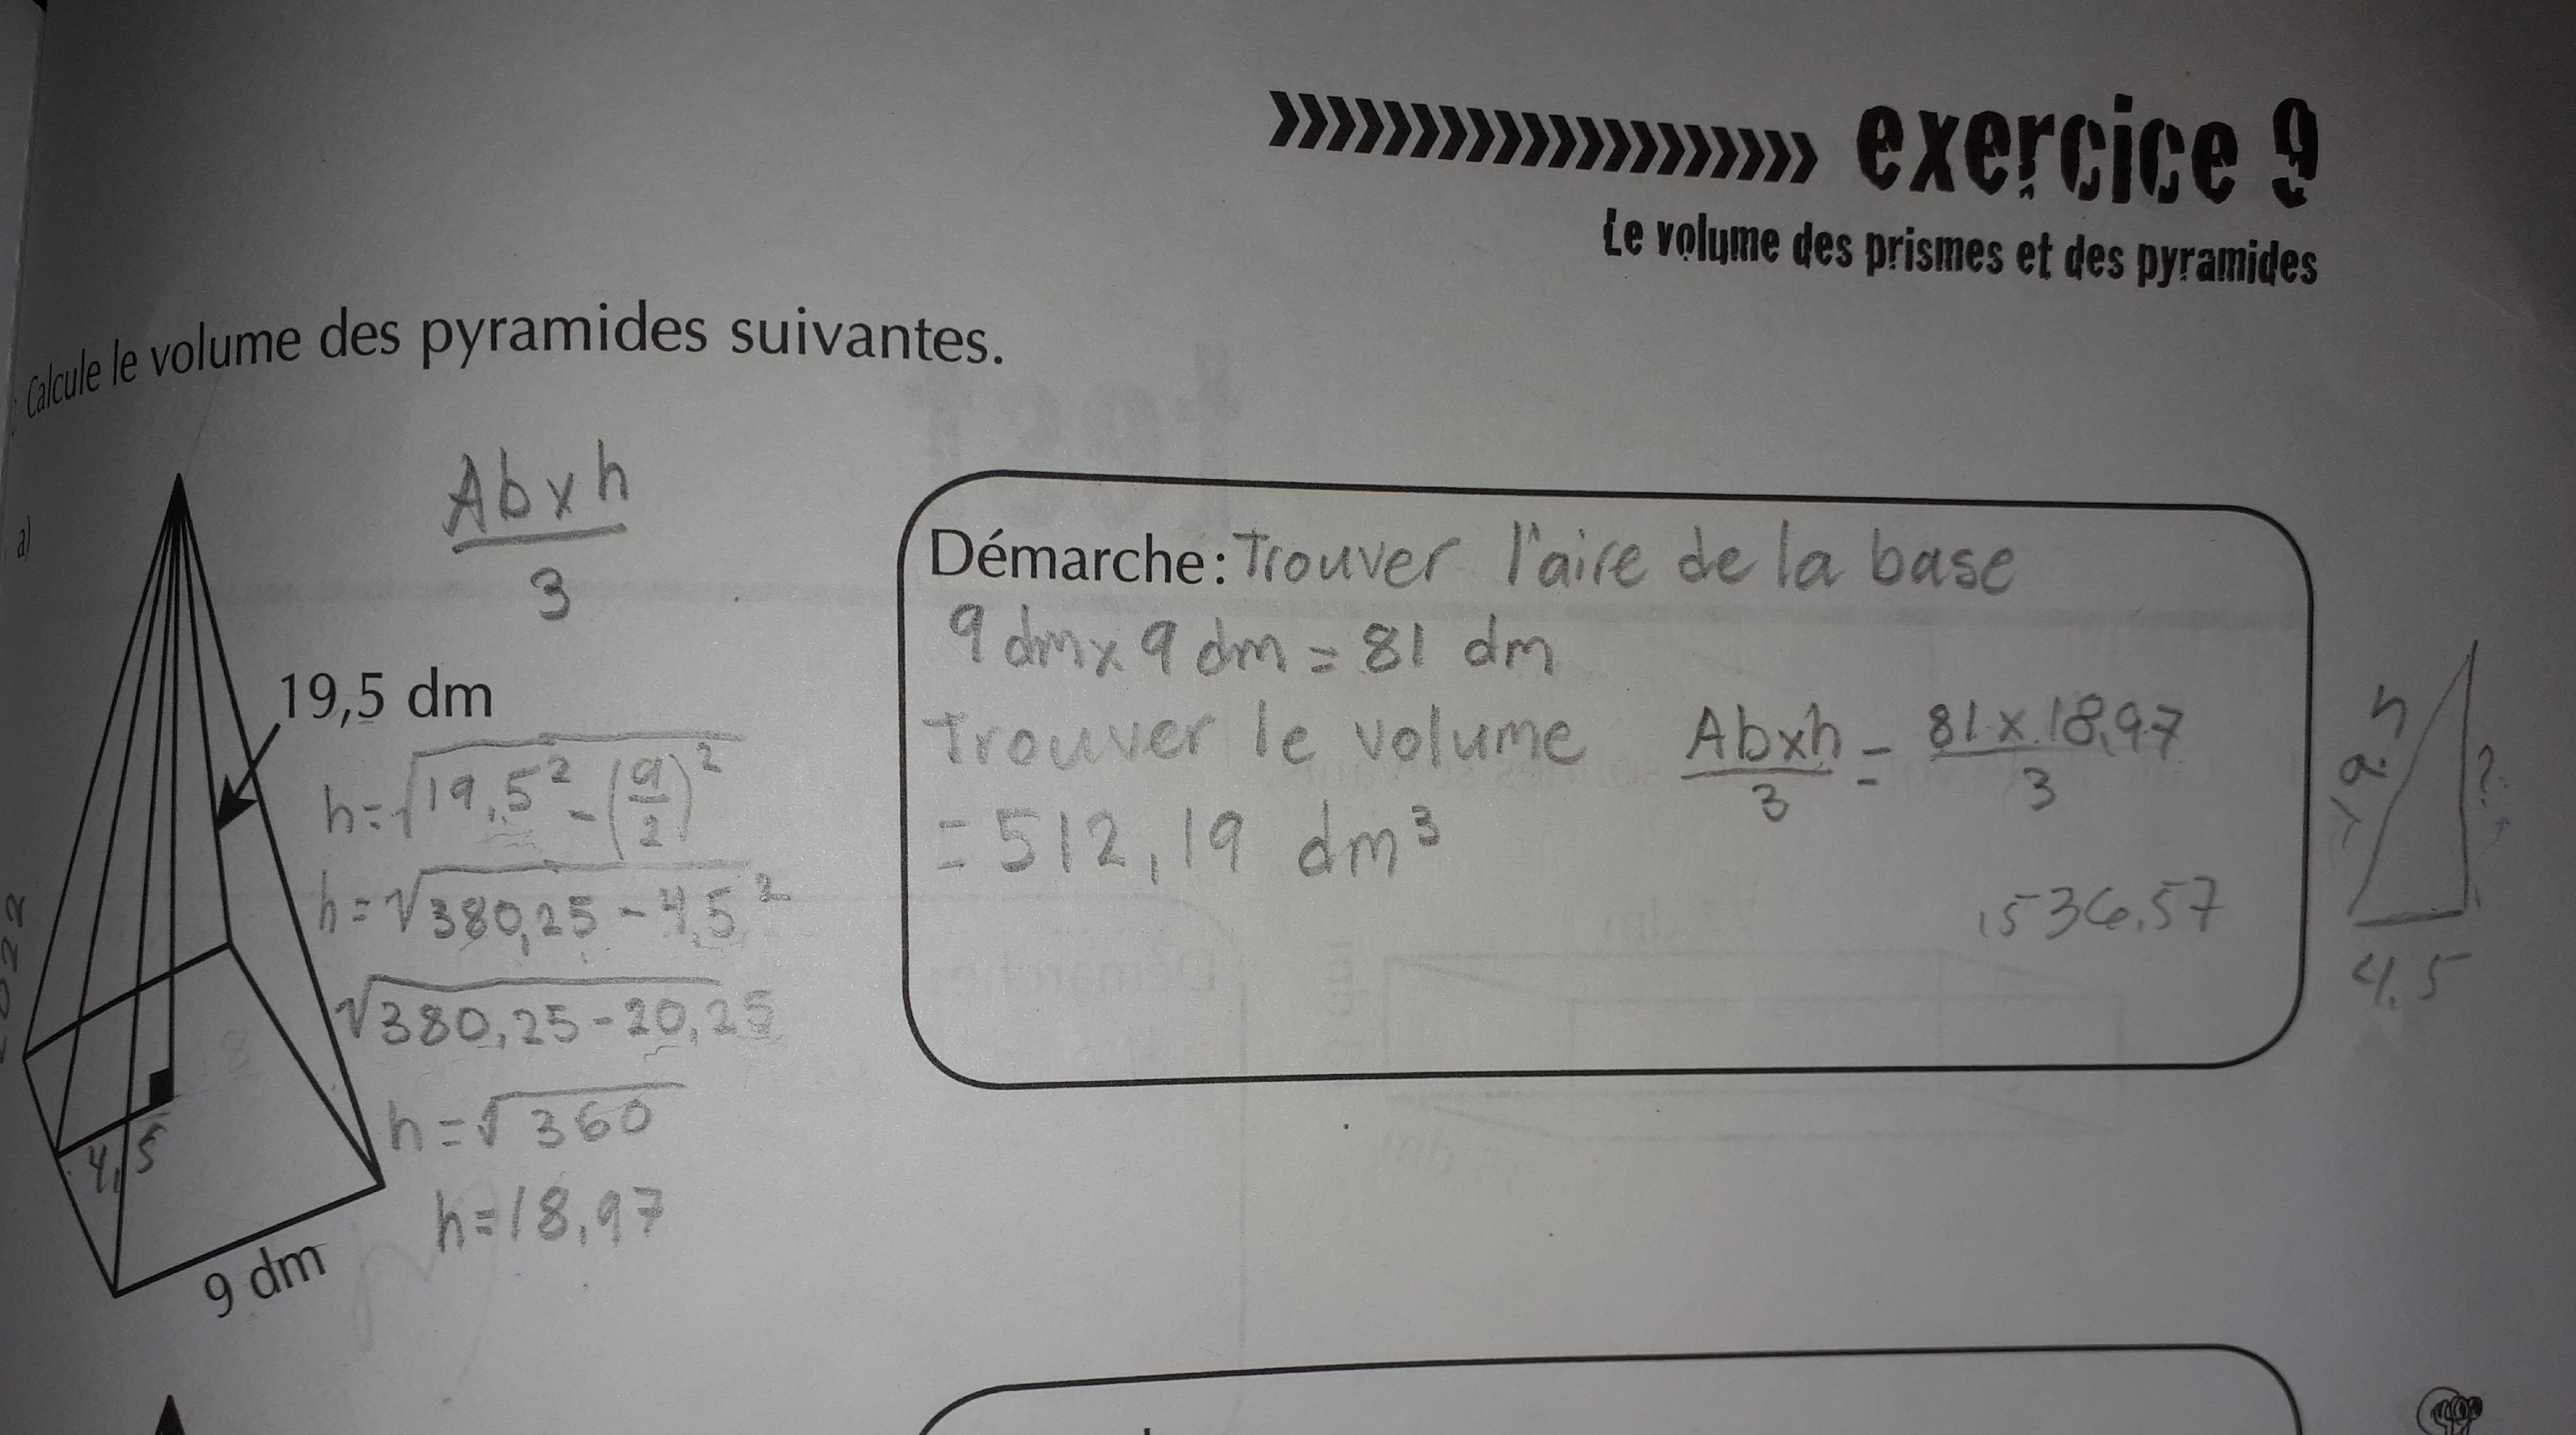 exercice 9
Le volume des prismes et des pyramides
Calcule le volume des pyramides suivantes.
a)
Ab x h
3
19,5 dm
h=√19,5² - (9/2)²
h=√380,25 - 4,5²
√380,25 - 20,25
h=√360
h=18,97
4,5
9 dm
Démarche: Trouver l'aire de la base
9 dm x 9 dm = 81 dm
Trouver le volume Abxh/3 = 81 x 18,97/3
= 512,19 dm³
1536,57
?
4,5